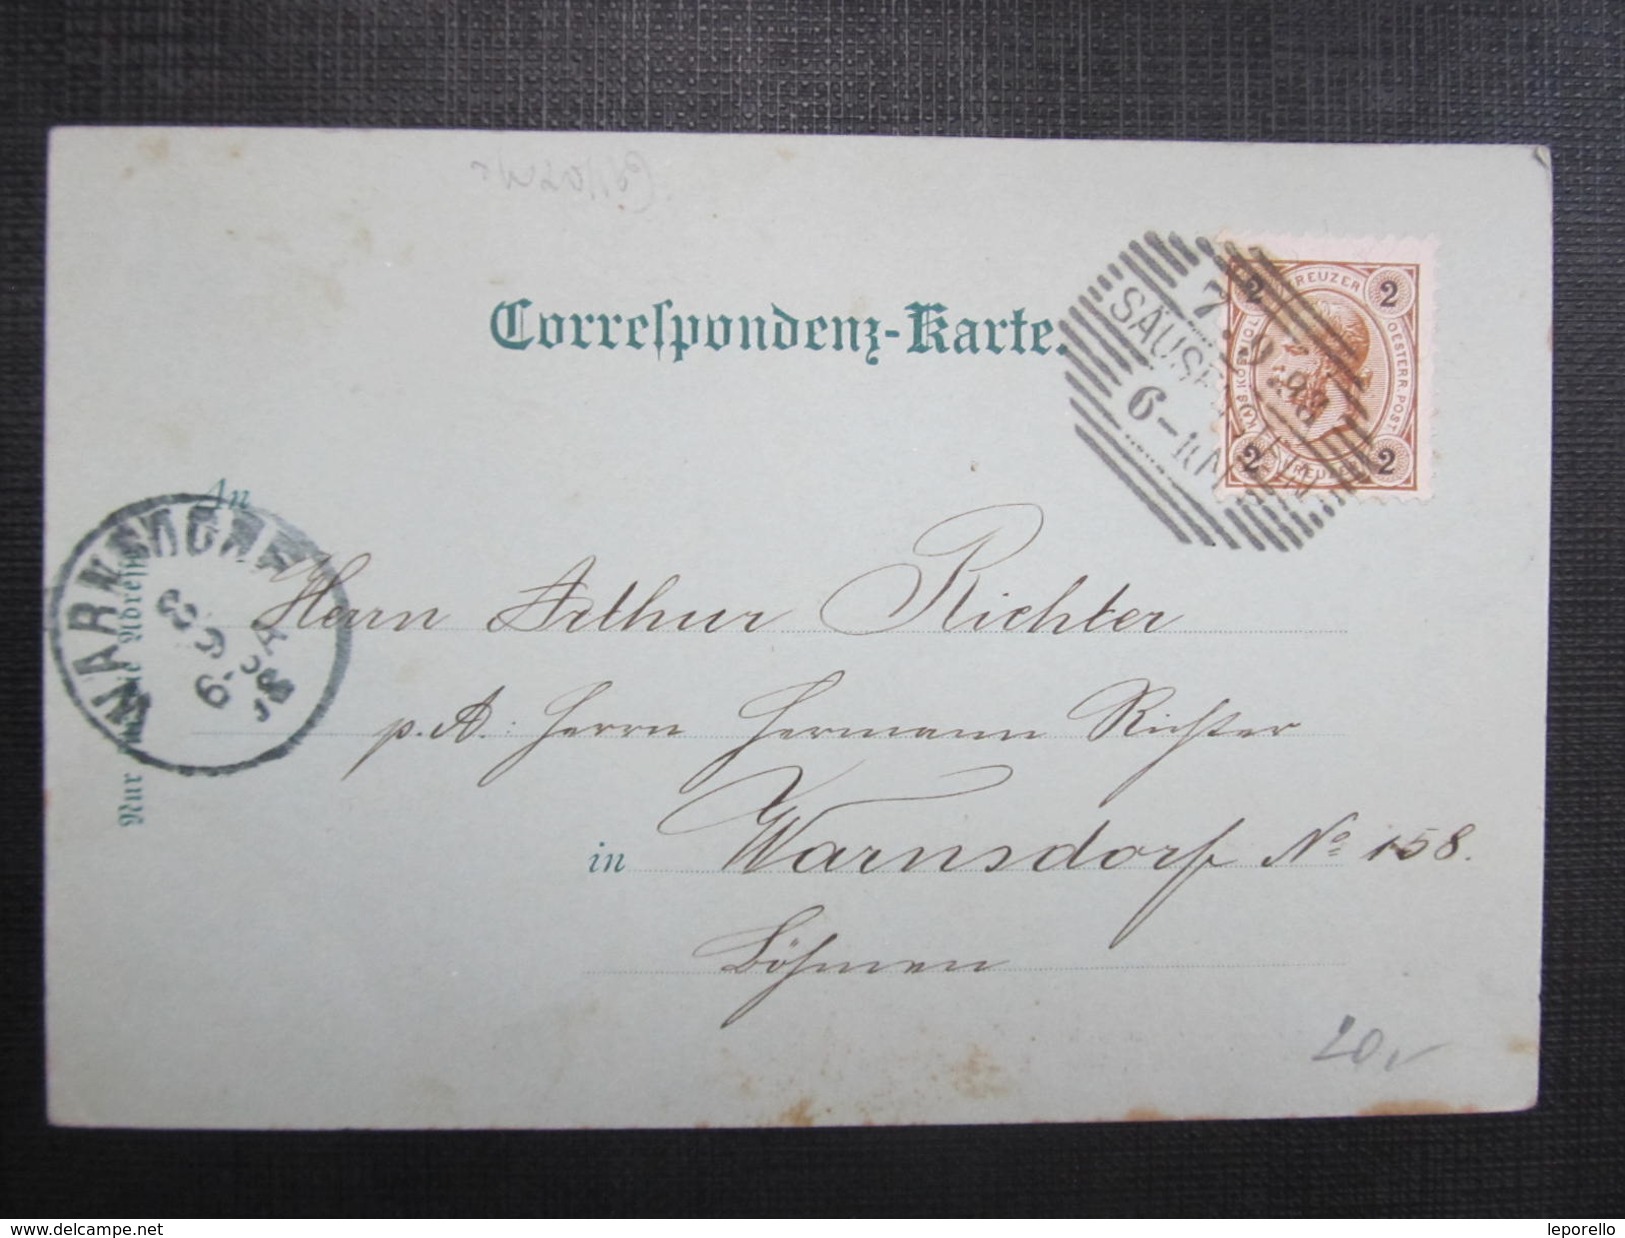 Correspondenz-Karte.
2 KREUZER 2
OESTERR. POST
2 KREUZER 2
7.9.98
SÄUSEN
6-
An
WARNSDORF
8 9
6-9A
98
Nur für die Adresse
Herrn Arthur Richter
p. A.: Herrn Hermann Richter
in Warnsdorf No 158.
Böhmen
20,-
www.delcampe.net
leporello